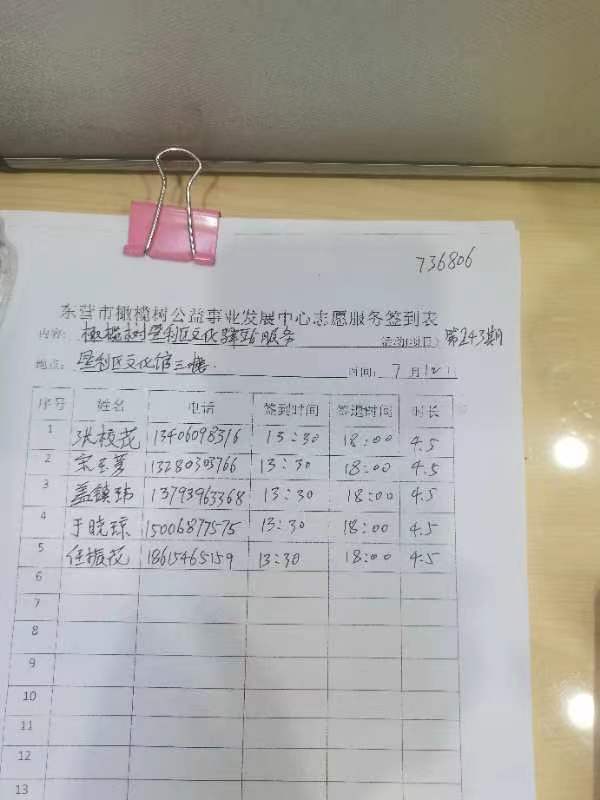 736806
东营市橄榄树公益事业发展中心志愿服务签到表
内容: 橄榄树垦利区文化驿站服务 第243期
地点: 垦利区文化馆三楼. 时间: 7月12日
序号 姓名 电话 签到时间 签退时间 时长
1 张枝茂 13406098376 13:30 18:00 4.5
2 宋玉芳 13280303766 13:30 18:00 4.5
3 盖镇玮 13793963368 13:30 18:00 4.5
4 于晓琼 15006877575 13:30 18:00 4.5
5 任振花 18615465159 13:30 18:00 4.5
6
7
8
9
10
11
12
13